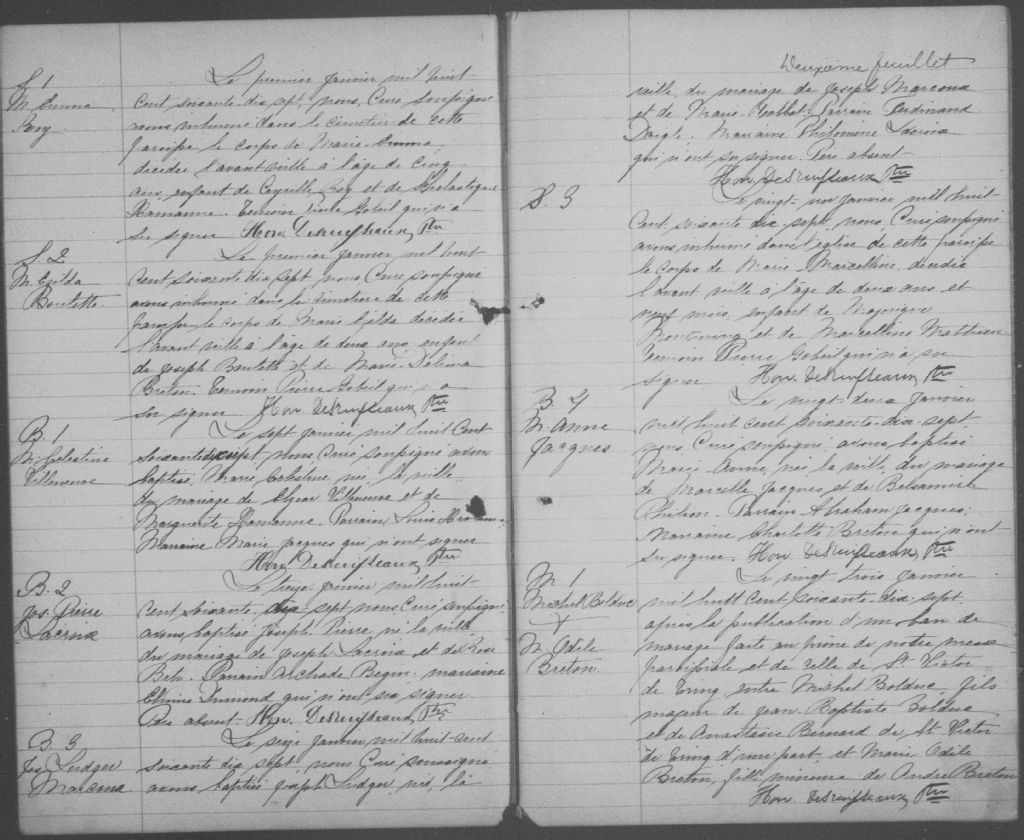 S. 1
M. Emma
Roy
Le premier janvier mil huit
cent soixante dix sept, nous, Curé soussigné
avons inhumé dans le cimetière de cette
paroisse le corps de Marie Emma,
décédée l'avant veille à l'âge de cinq
ans, enfant de Cyrille Roy et de Scholastique
Hamanne. Témoin Goleil qui n'a
su signer Hon. Desruisseaux Ptre
S. 2
M. Exilda
Boulette
Le premier janvier mil huit
cent soixante dix sept, nous Curé soussigné
avons inhumé dans le cimetière de cette
paroisse le corps de Marie décédée
l'avant veille à l'âge de deux ans enfant
de Joseph Boulette et de Marie Délima
Breton. Témoin Pierre Goleil qui n'a
su signer Hon Desruisseaux Ptre
B. 1
M. Celestine
Villeneuve
Le sept janvier mil huit cent
soixante dix sept, nous Curé soussigné avons
baptisé Marie Celestine, née la veille
du mariage de Elzear Villeneuve et de
Marguerite Hamanne. Parrain Louis
Marraine Marie Jacques qui n'ont signer
Hon. Desruisseaux Ptre
B. 2
Jos. Pierre
Lacroix
Le treize janvier mil huit
cent soixante dix sept nous Curé soussigné
avons baptisé Joseph Pierre né la veille
du mariage de Joseph Lacroix et de Rose
Parrain Archade Begin marraine
Dumond qui n'ont su signer
Père absent Hon. Desruisseaux Ptre
B. 3
Jos Ludger
Marcoux
Le seize janvier mil huit cent
soixante dix sept, nous Curé soussigné,
avons baptisé Joseph Ludger, né, la
Deuxième feuillet
veille, du mariage de Joseph Marcoux
et de Marie Parrain Ferdinand
Daigle. Marraine Philomène Lacroix
qui n'ont su signer. Père absent
Hon. Desruisseaux Ptre
S. 3
Le vingt-un janvier mil huit
cent soixante dix sept, nous, Curé soussigné
avons inhumé dans l'église de cette paroisse
le corps de Marie Marcelline, décédée
l'avant veille à l'âge de deux ans et
neuf mois, enfant de Majorique
et de Marcelline Mathieu
Témoin Pierre Goleil qui n'a su
signer Hon. Desruisseaux Ptre
B. 4
M. Anne
Jacques
Le vingt-deux janvier
mil huit cent soixante-dix-sept,
nous Curé soussigné, avons baptisé
Marie Anne, née la veille, du mariage
de Marcelle Jacques et de
Parrain Abraham Jacques;
Marraine Charlotte Breton qui n'ont
su signer. Hon Desruisseaux Ptre
M 1
Michel Bolduc
+
M. Odile
Breton
Le vingt-trois janvier
mil huit cent soixante-dix-sept,
après la publication d'un ban de
mariage faite au prône de notre messe
paroissiale et de celle de St Victor
de Tring, entre Michel Bolduc, fils
majeur de Jean Baptiste Bolduc
et de Anastasie Bernard de St Victor
de Tring d'une part, et Marie Odile
Breton, fille mineure de André Breton
Hon. Desruisseaux Ptre